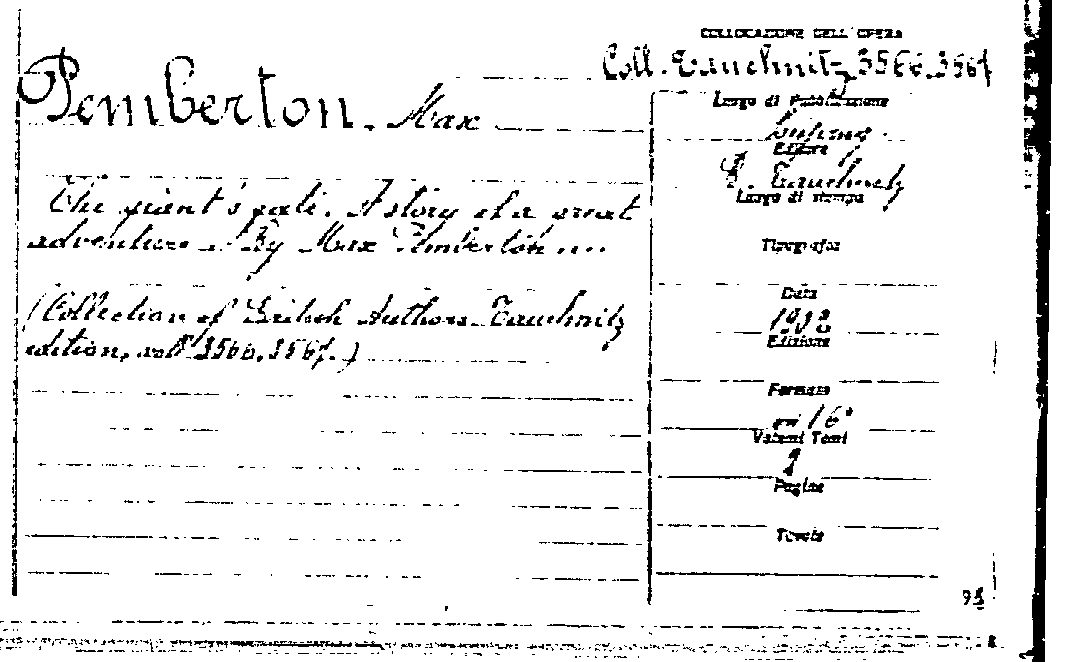 COLLOCAZIONE DELL'OPERA
Coll. Tauchnitz 3566.3567
Pemberton. Max
The giant's gate. A story of a great
adventure. By Max Pemberton ...
(Collection of British Authors. Tauchnitz
edition, vol. 3566.3567.)
Luogo di Pubblicazione
Editore
B. Tauchnitz
Luogo di stampa
Tipografia
Data
Edizione
Formato
in 16°
Volumi Tomi
2
Pagine
Tavole